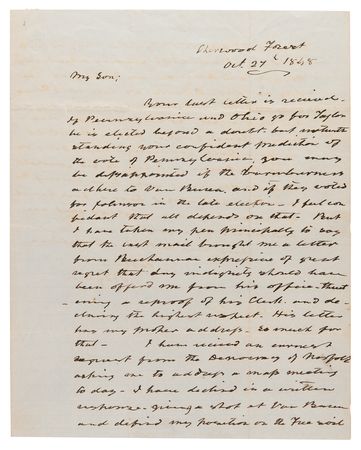 Sherwood Forest
Oct. 27th 1848
My Son;
Your last letter is received.
If Pennsylvania and Ohio go for Taylor
he is elected beyond a doubt. but notwith
standing your confident prediction of
the vote of Pennsylvania, you may
be disappointed if the Barnburners
adhere to Van Buren, and if they voted
for in the late election. I feel con
fident that all depends on that. But
I have taken my pen principally to say
that the last mail brought me a letter
from Buchannan expressive of great
regret that any indignity should have
been offered me from his office. threat
ening a reproof of his Clerk. and de
claring the highest respect. His letter
has my proper address. So much for
that. I have received an earnest
request from the Democracy of Norfolk
asking me to address a mass meeting
to day. I have declined in a written
response. giving a shot at Van Buren
and defined my position on the Free soil